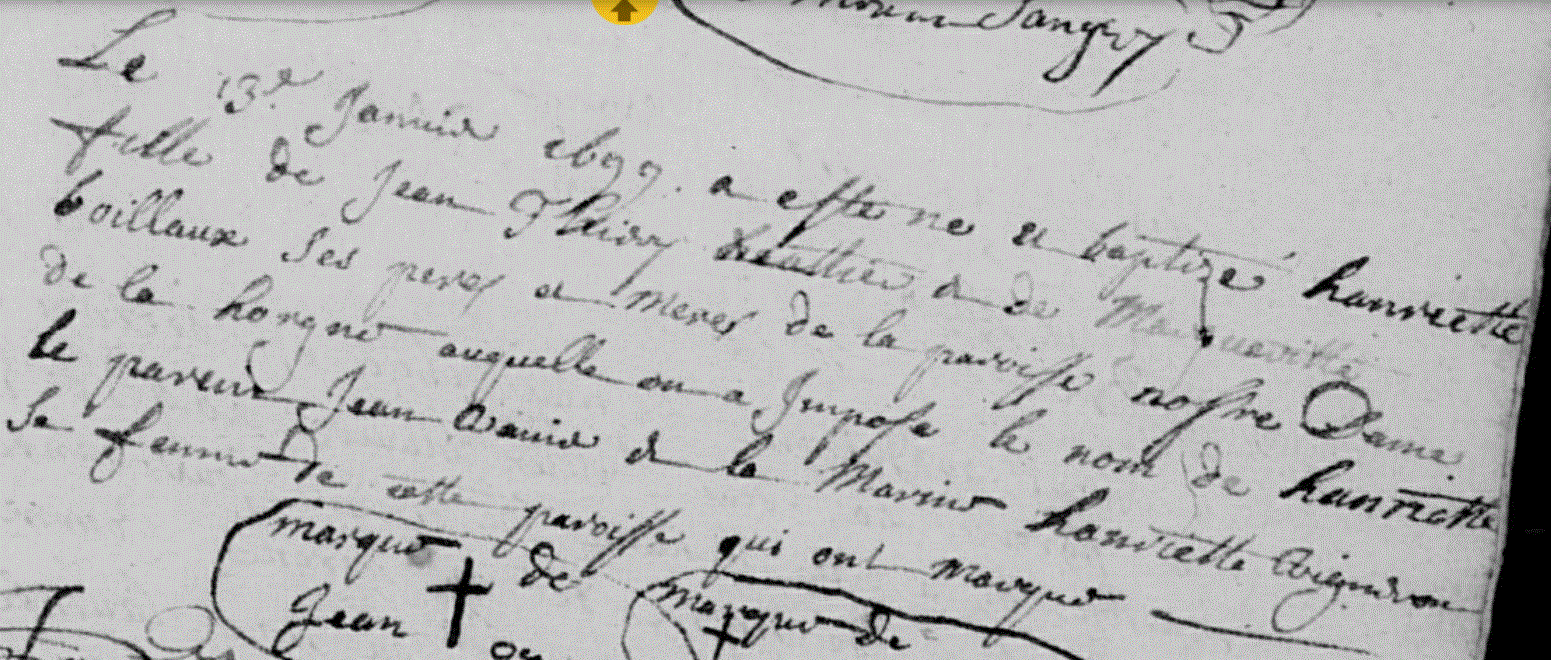 Sangery
Le 13e Janvier 1697. a esté né et baptizé hanriette
fille de Jean Thiery et de Margueritte
boillaux ses peres et meres de la paroisse nostre Dame
de la horgne auquelle on a Imposé le nom de hanriette
le parein Jean David et la Marine hanriette Vigneron
Sa femme de cette paroisse qui ont marqué
marque de marque de
Jean